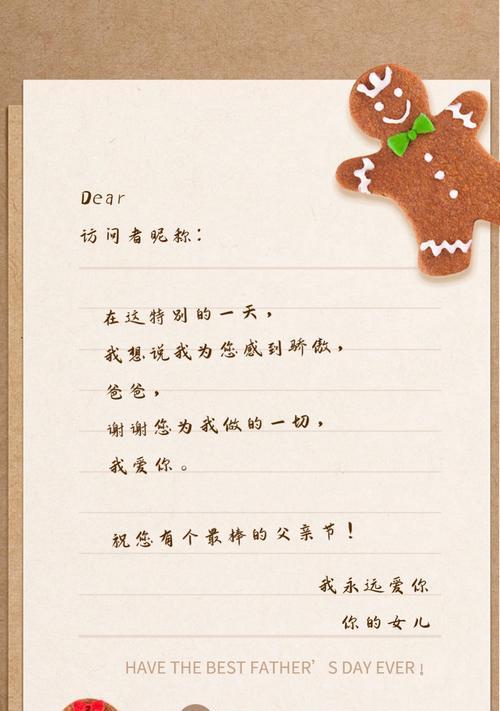 Dear
访问者昵称：
在这特别的一天，
我想说我为您感到骄傲，
爸爸，
谢谢您为我做的一切，
我爱你。
祝您有个最棒的父亲节！
我永远爱你
你的女儿
HAVE THE BEST FATHER’S DAY EVER！